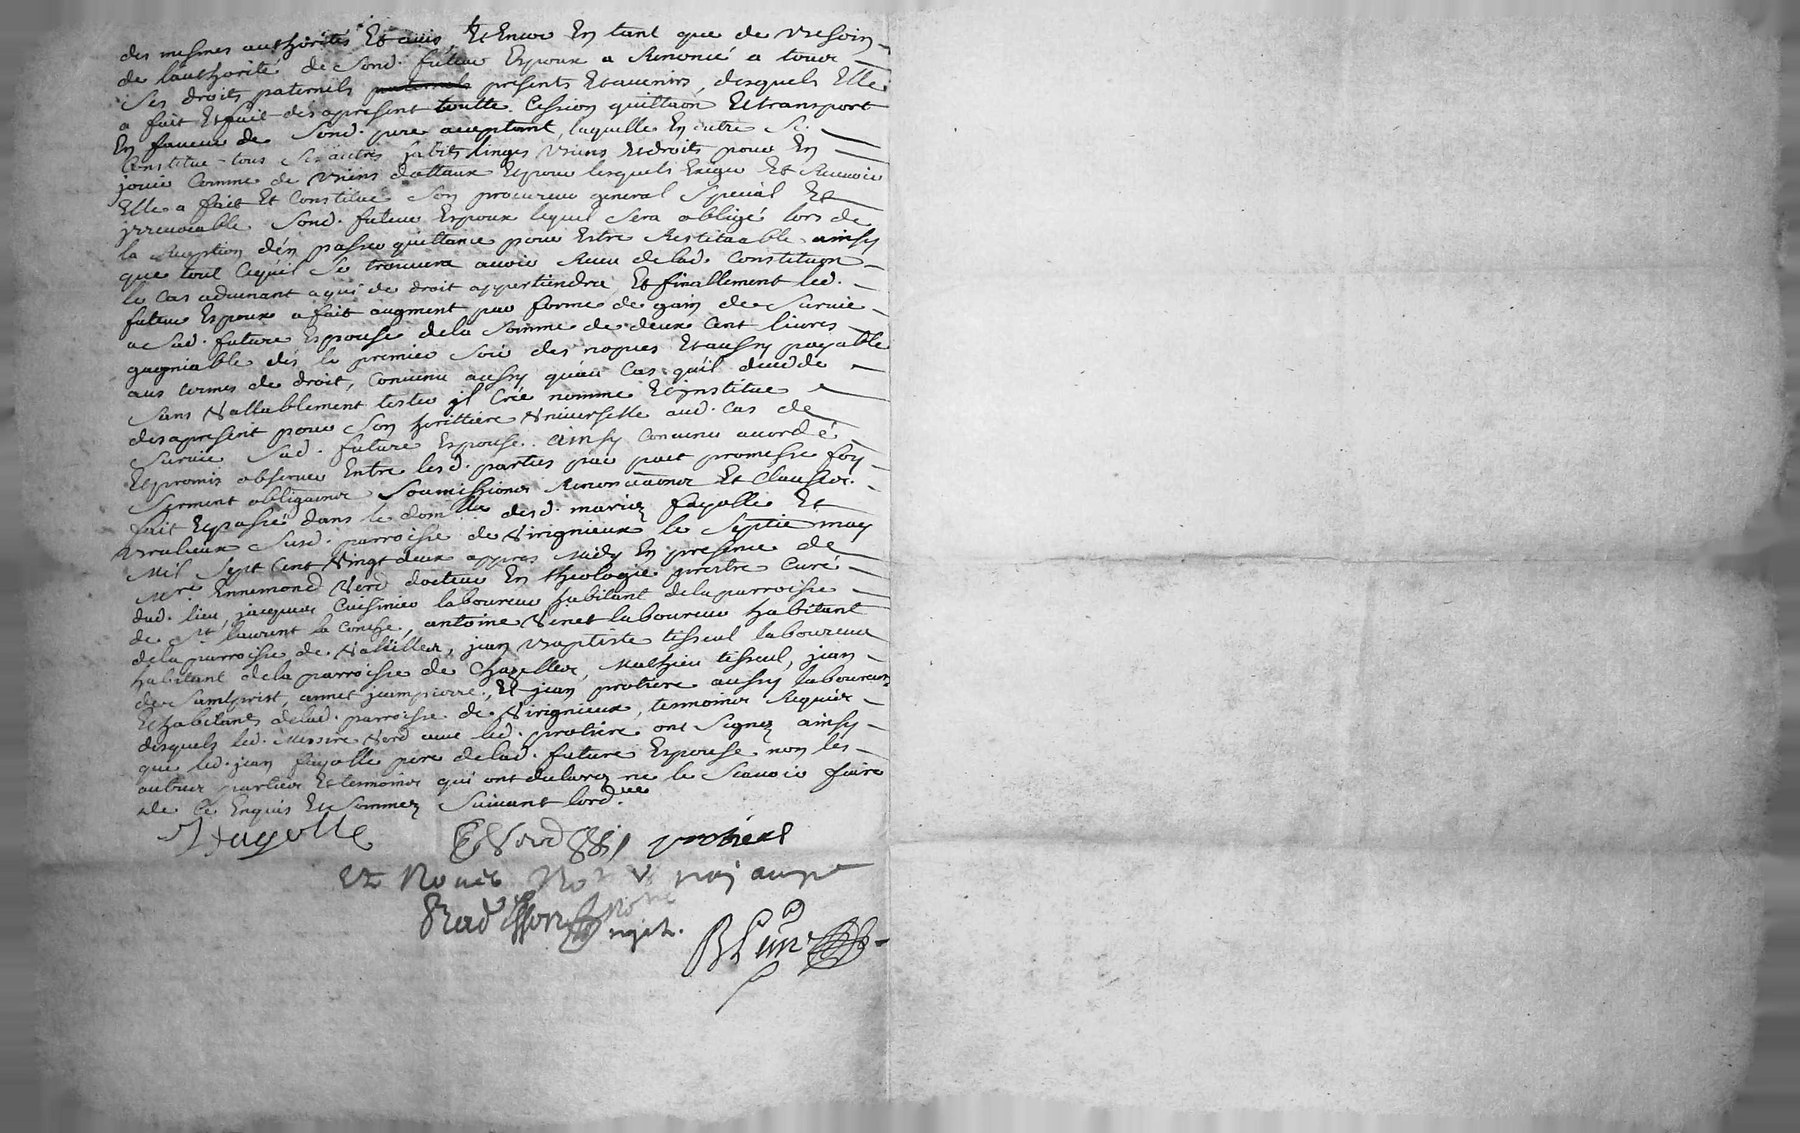 des mesmes authorités Et avis, Et Encore En tant que de Besoin
de lauthorité de Sond. futeur Espoux a Renoncé a tous
Ses droits paternels presents Et avenirs, desquels Elle
a fait Et fait des apresent toutte Cession quittaôn Et transport
En faveur de Sond. pere aceptant, laquelle En outre Se
Constitue tous Ses autres habits linges Biens Et droits pour En
jouir Comme de Biens dottaux Et pour lesquels Exiger Et Recevoir
Elle a fait Et Constitué Son procureur general Special Et
jrrevocable Sond. futeur Espoux lequel Sera obligé lors de
la Reception d'én passer quittance pour Estre Restituable ainsy
que tout Cequil Se trouvera avoir Receu de lad. Constitution
le Cas advenant a qui de droit appertiendra, Et finallement led.
futeur Espoux a fait augment par forme de gain de Survie
a Sad. future Espouse dela Somme de deux Cent livres
gagniable dés le premier Soir des nopces Et aussy payable
aux termes de droit, Convenu aussy qu'au Cas qu'il decedde
Sans Vallablement tester jl Crée nomme Et jnstitue
des apresent pour Son herittiere Universelle aud. Cas de
Survie Sad. future Espouse. ainsy Convenu accordé
Et promis observer Entre lesd. parties par pact promesse foy
Serment obligaônes Soumissiones Renonciaones Et Clauses.
fait Et passé dans le domlle desd. mariez fayolle Et
Bralieux Susd. parroisse de Virignieux le Septie may
Mil Sept Cent Vingt deux appres Midy En presence de
Mre Ennemond Verd docteur En theologie prestre Curé
dud. lieu, jacques Cuisinier laboureur habitant de la parroisse
de St laurent la Conche, antoine Vinet laboureur habitant
dela parroisse de Valeilles, jean Baptiste tisseul laboureur
habitant dela parroisse de Chazelles, Mathieu tisseul, jean
annet jeampierre, Et jean protiere aussy laboureurs
Et habitants delad. parroisse de Virignieux, tesmoins Requis
desquels led. Messire Verd avec led. protiere ont Signez ainsy
que led. jean fayolle pere delad. future Espouse non les
autres parties Et tesmoins qui ont declarez ne le Scavoir faire
de Ce Enquis Et Sommez Suivant lord.ce
J Fayolle Verd protiere